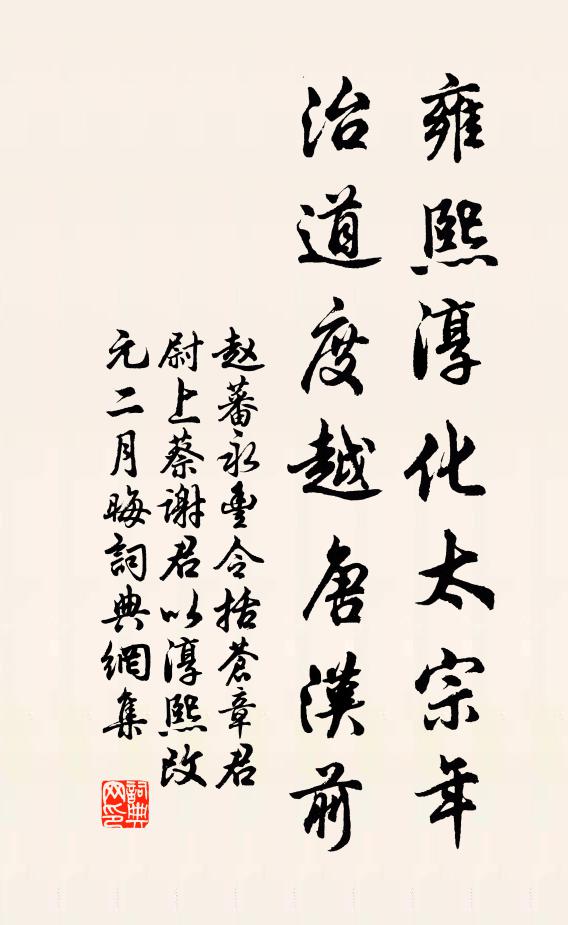 雍熙淳化太宗年
治道度越唐漢前
赵蕃永豐令括蒼章君
尉上蔡謝君以淳熙改
元二月晦詞典網集
詞典网印